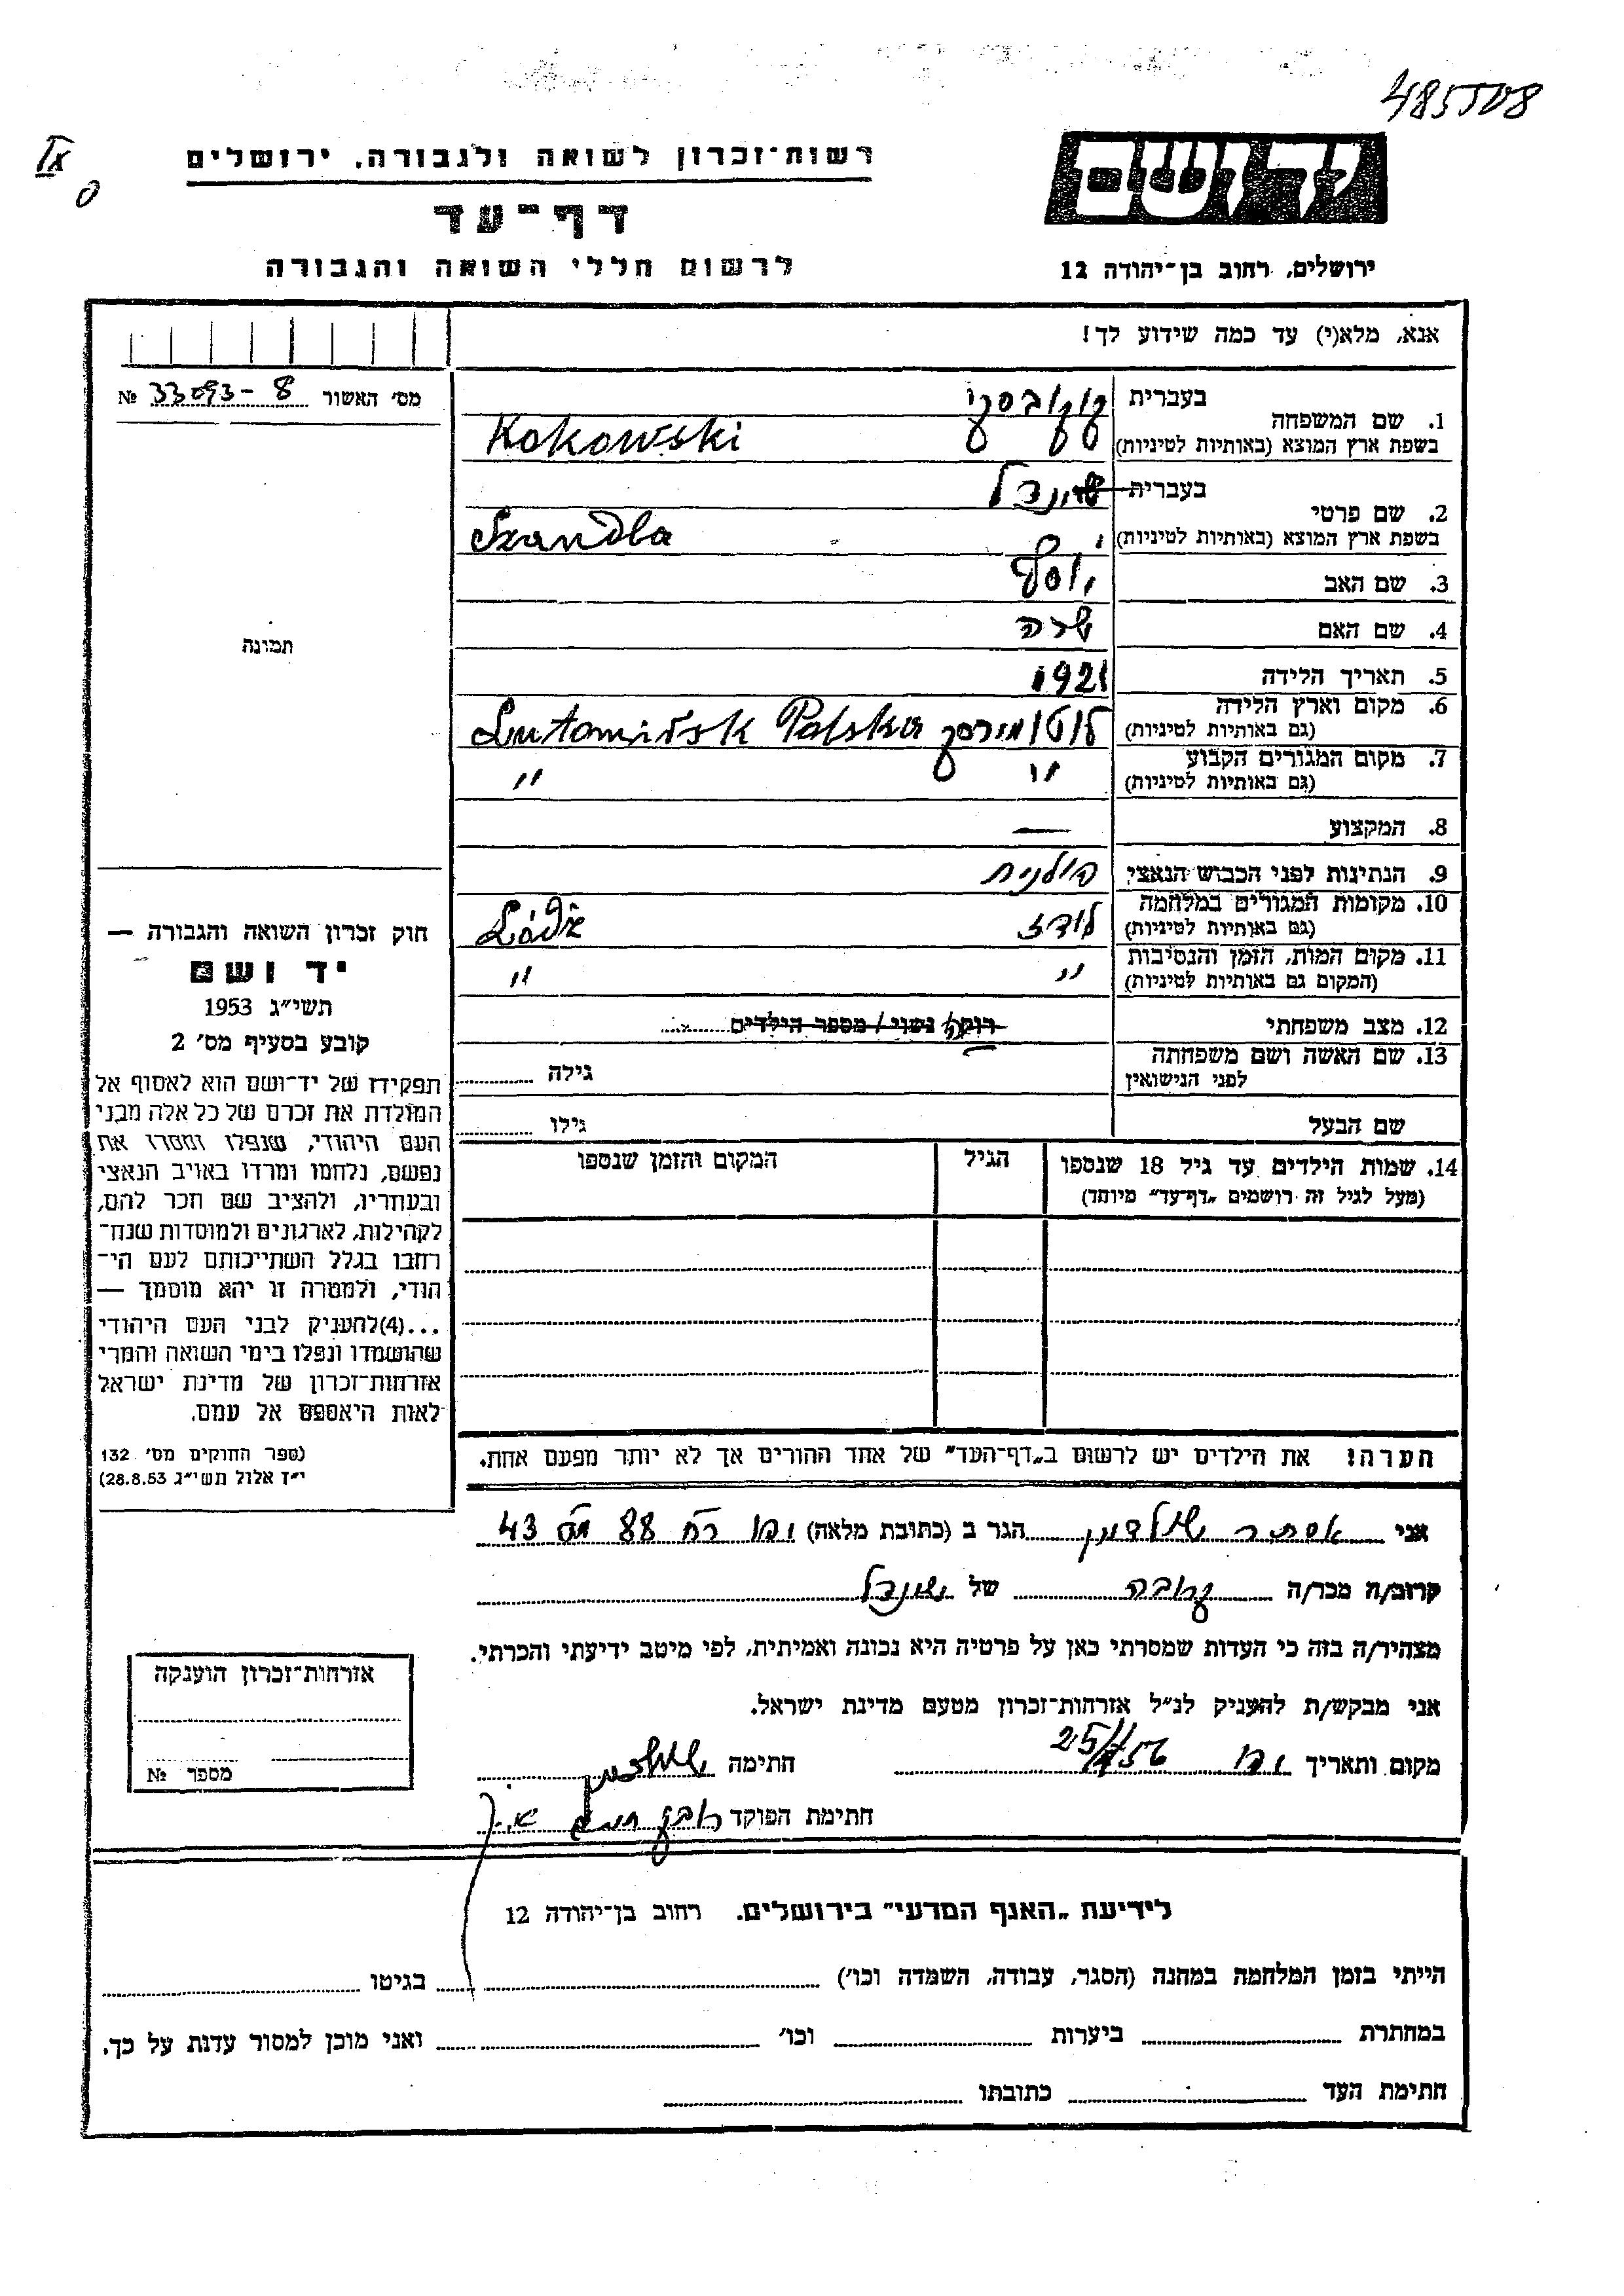 485508
IX
0
יד ושם
רשות־זכרון לשואה ולגבורה, ירושלים
דף־עד
לרשום חללי השואה והגבורה
ירושלים, רחוב בן־יהודה 12
אנא, מלא(י) עד כמה שידוע לך!
מס' האשור 33093-8 №
תמונה
1. שם המשפחה
בעברית קוקובסקי
בשפת ארץ המוצא (באותיות לטיניות) Kokowski
2. שם פרטי
בעברית שיינדל
בשפת ארץ המוצא (באותיות לטיניות) Szandla
3. שם האב יוסף
4. שם האם שרה
5. תאריך הלידה 1921
6. מקום וארץ הלידה לוטומירסק Lutomirsk Polska
(גם באותיות לטיניות)
7. מקום המגורים הקבוע " "
(גם באותיות לטיניות)
8. המקצוע —
9. הנתינות לפני הכבוש הנאצי פולנית
10. מקומות המגורים במלחמה לודז Łódź
(גם באותיות לטיניות)
11. מקום המות, הזמן והנסיבות " "
(המקום גם באותיות לטיניות)
12. מצב משפחתי רוקה / נשוי / מספר הילדים
13. שם האשה ושם משפחתה
לפני הנישואין
גילה
שם הבעל גילו
14. שמות הילדים עד גיל 18 שנספו הגיל המקום והזמן שנספו
(מעל לגיל זה רושמים „דף־עד" מיוחד)
הערה! את הילדים יש לרשום ב„דף־העד" של אחד ההורים אך לא יותר מפעם אחת.
חוק זכרון השואה והגבורה —
יד ושם
תשי"ג 1953
קובע בסעיף מס' 2
תפקידו של יד־ושם הוא לאסוף אל
המולדת את זכרם של כל אלה מבני
העם היהודי, שנפלו ומסרו את
נפשם, נלחמו ומרדו באויב הנאצי
ובעוזריו, ולהציב שם וזכר להם,
לקהילות, לארגונים ולמוסדות שנח־
רחבו בגלל השתייכותם לעם הי־
הודי, ולמטרה זו יהא מוסמך —
...(4)להעניק לבני העם היהודי
שהושמדו ונפלו בימי השואה והמרי
אזרחות־זכרון של מדינת ישראל
לאות היאספם אל עמם.
(ספר החוקים מס' 132
י"ז אלול תשי"ג 28.8.53)
אני אסתר שולדמן הגר ב (כתובת מלאה) יפו רח 88 מס 43
קרוב/ה מכר/ה קרובה של שיינדל
מצהיר/ה בזה כי העדות שמסרתי כאן על פרטיה היא נכונה ואמיתית, לפי מיטב ידיעתי והכרתי.
אני מבקש/ת להעניק לנ"ל אזרחות־זכרון מטעם מדינת ישראל.
מקום ותאריך יפו 25/ /56 חתימה
חתימת הפוקד
אזרחות־זכרון הוענקה
מספר №
לידיעת „האגף המדעי" בירושלים, רחוב בן־יהודה 12
הייתי בזמן המלחמה במחנה (הסגר, עבודה, השמדה וכו') בגיטו
במחתרת ביערות וכו' ואני מוכן למסור עדות על כך.
חתימת העד כתובתו